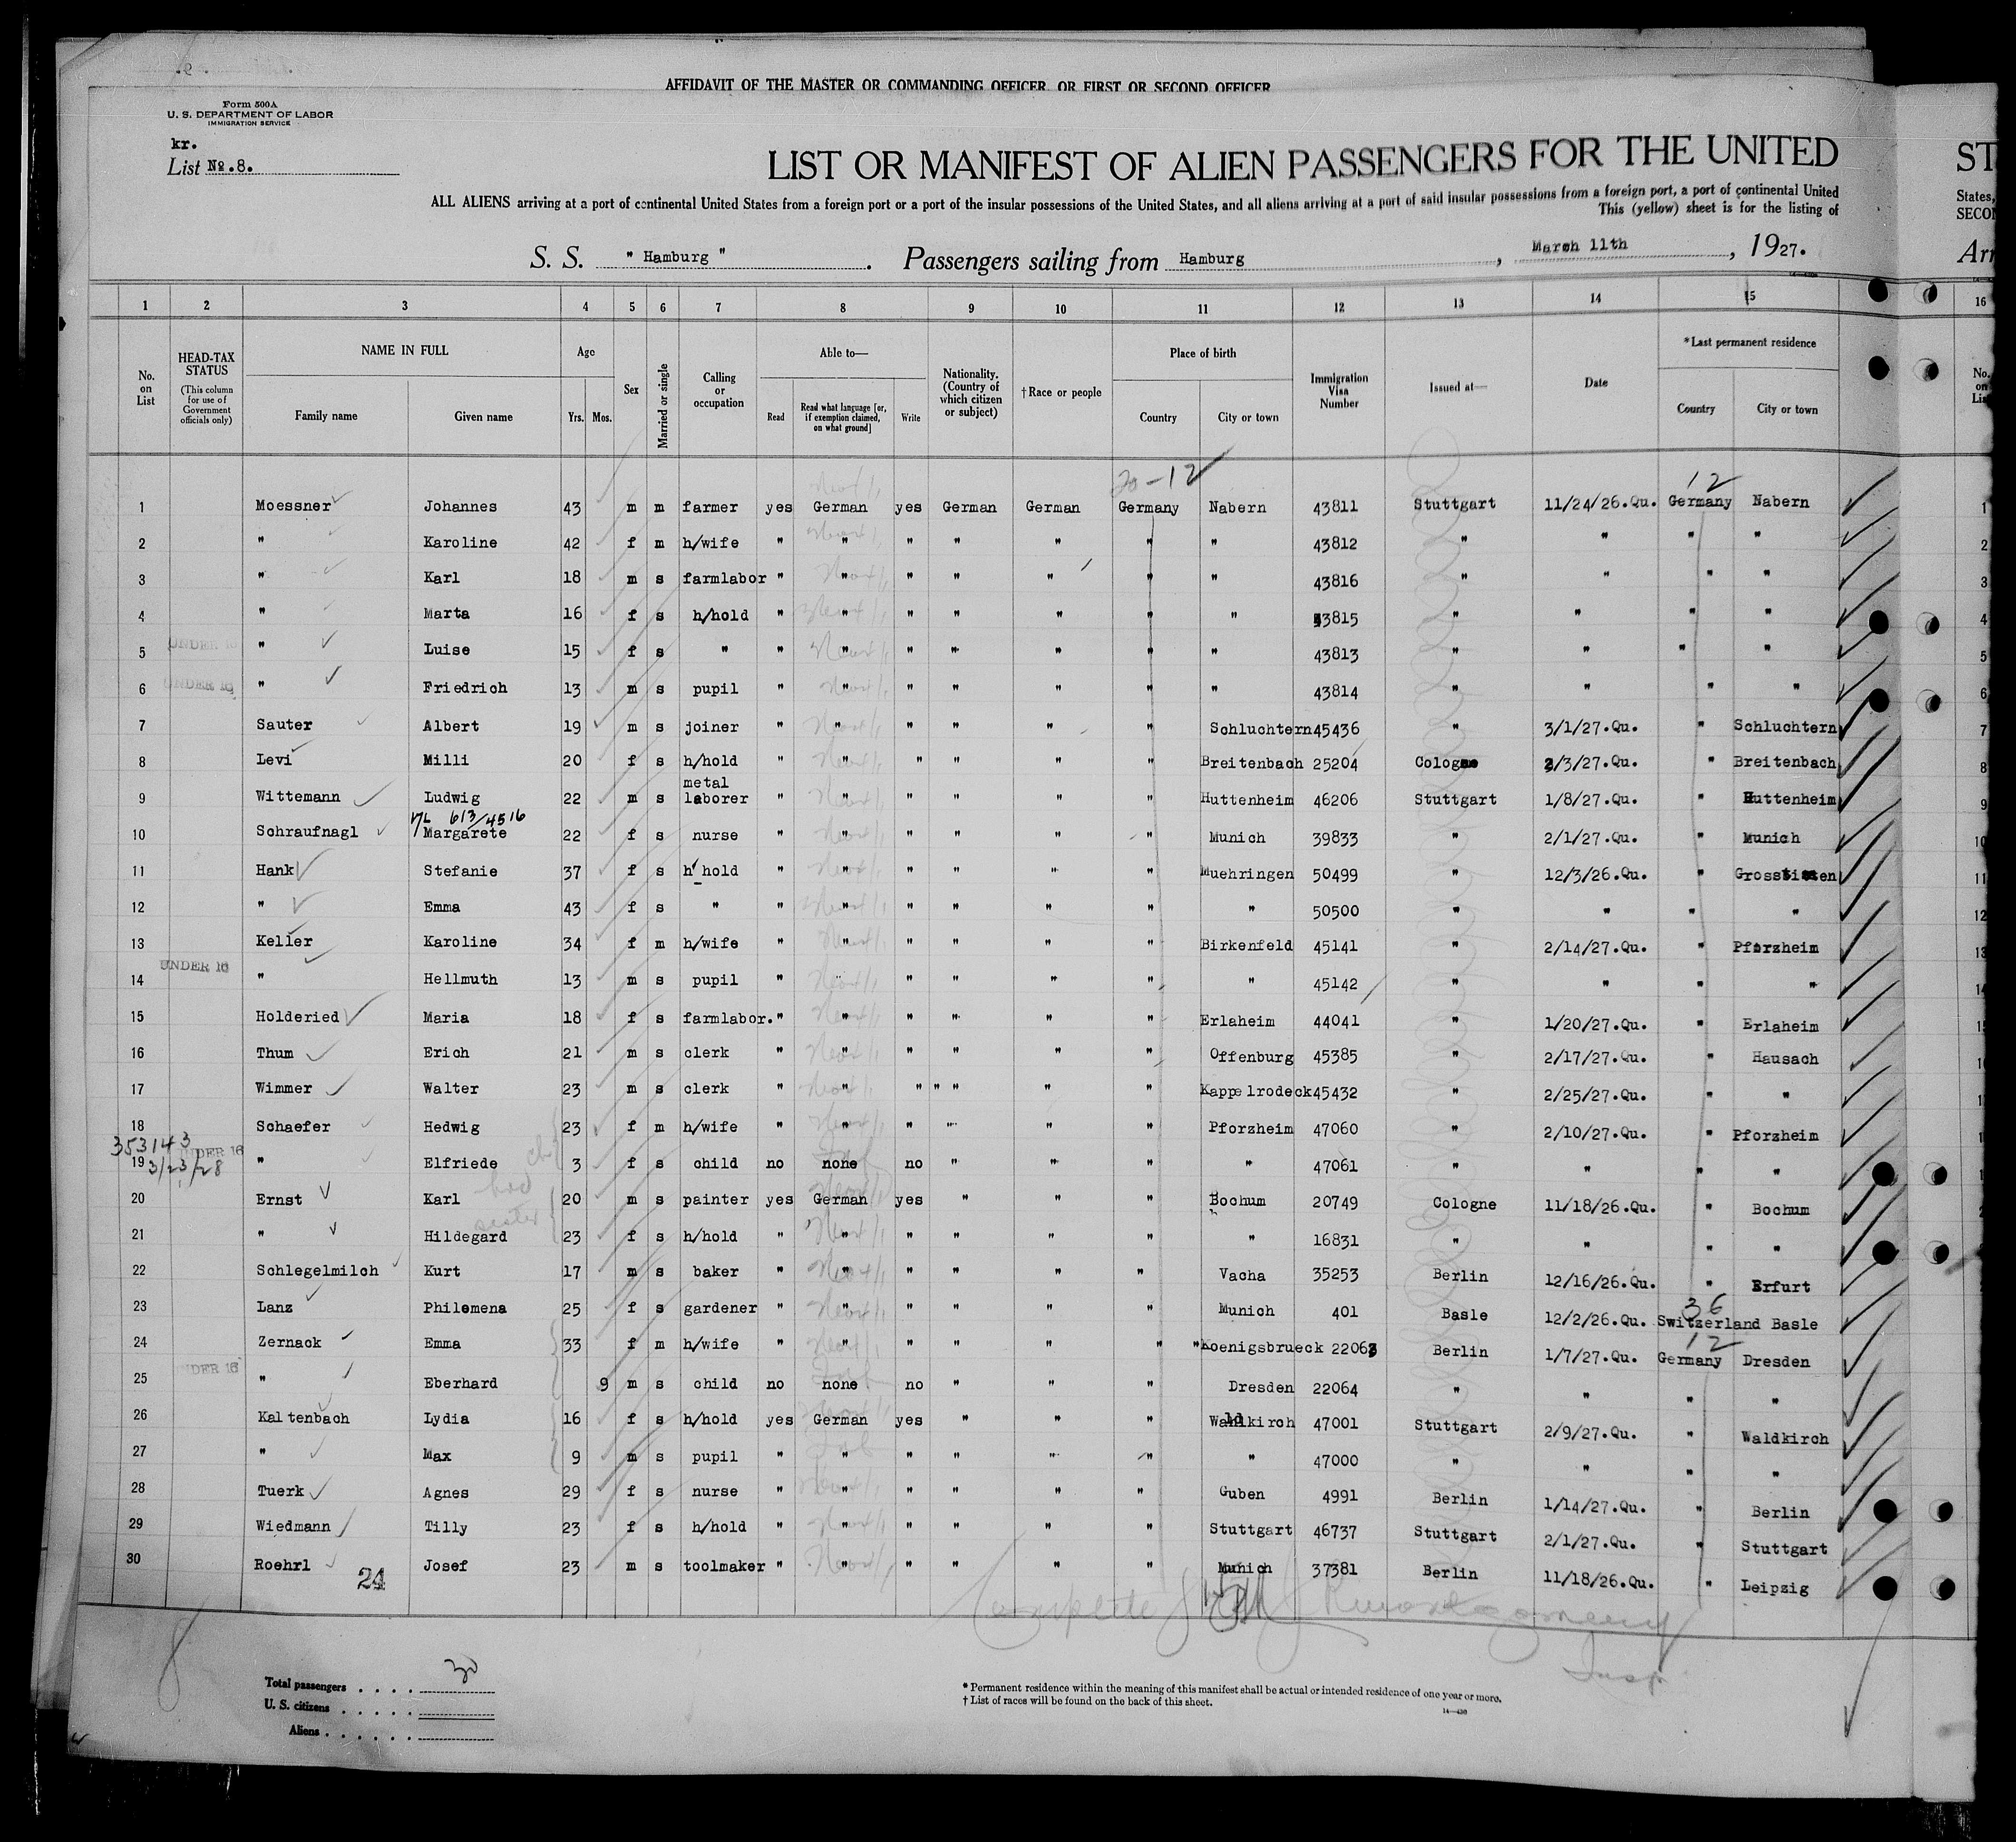 AFFIDAVIT OF THE MASTER OR COMMANDING OFFICER, OR FIRST OR SECOND OFFICER
Form 500A
U. S. DEPARTMENT OF LABOR
IMMIGRATION SERVICE
kr.
List No.8.
LIST OR MANIFEST OF ALIEN PASSENGERS FOR THE UNITED ST
ALL ALIENS arriving at a port of continental United States from a foreign port or a port of the insular possessions of the United States, and all aliens arriving at a port of said insular possessions from a foreign port, a port of continental United States,
This (yellow) sheet is for the listing of
S. S. " Hamburg ". Passengers sailing from Hamburg, March 11th, 1927.
1 2 3 4 5 6 7 8 9 10 11 12 13 14 15 16
No. on List
HEAD-TAX STATUS (This column for use of Government officials only)
NAME IN FULL Family name Given name
Age Yrs. Mos.
Sex
Married or single
Calling or occupation
Able to— Read Read what language [or, if exemption claimed, on what ground] Write
Nationality. (Country of which citizen or subject)
†Race or people
Place of birth Country City or town
Immigration Visa Number
Issued at—
Date
*Last permanent residence Country City or town
20-12 12
1 Moessner Johannes 43 m m farmer yes German yes German German Germany Nabern 43811 Stuttgart 11/24/26.Qu. Germany Nabern
2 " Karoline 42 f m h/wife " " " " " " " 43812 " " " "
3 " Karl 18 m s farmlabor " " " " " " " 43816 " " " "
4 " Marta 16 f s h/hold " " " " " " " 43815 " " " "
5 UNDER 16 " Luise 15 f s " " " " " " " " 43813 " " " "
6 UNDER 16 " Friedrich 13 m s pupil " " " " " " " 43814 " " " "
7 Sauter Albert 19 m s joiner " " " " " " Schluchtern 45436 " 3/1/27.Qu. " Schluchtern
8 Levi Milli 20 f s h/hold " " " " " " Breitenbach 25204 Cologne 2/3/27.Qu. " Breitenbach
9 Wittemann Ludwig 22 m s metal laborer " " " " " " Huttenheim 46206 Stuttgart 1/8/27.Qu. " Huttenheim
V/L 613/4516
10 Schraufnagl Margarete 22 f s nurse " " " " " " Munich 39833 " 2/1/27.Qu. " Munich
11 Hank Stefanie 37 f s h/hold " " " " " " Muehringen 50499 " 12/3/26.Qu. "
12 " Emma 43 f s " " " " " " " " 50500 " " " "
13 Keller Karoline 34 f m h/wife " " " " " " Birkenfeld 45141 " 2/14/27.Qu. " Pforzheim
14 UNDER 16 " Hellmuth 13 m s pupil " " " " " " " 45142 " " " "
15 Holderied Maria 18 f s farmlabor. " " " " " " Erlaheim 44041 " 1/20/27.Qu. " Erlaheim
16 Thum Erich 21 m s clerk " " " " " " Offenburg 45385 " 2/17/27.Qu. " Hausach
17 Wimmer Walter 23 m s clerk " " " " " " " Kappelrodeck 45432 " 2/25/27.Qu. " "
18 Schaefer Hedwig 23 f m h/wife " " " " " " Pforzheim 47060 " 2/10/27.Qu. " Pforzheim
353143 3/23/28
19 UNDER 16 " Elfriede 3 f s child no none no " " " " 47061 " " " "
20 Ernst Karl 20 m s painter yes German yes " " " Bochum 20749 Cologne 11/18/26.Qu. " Bochum
sister
21 " Hildegard 23 f s h/hold " " " " " " " 16831 " " " "
22 Schlegelmilch Kurt 17 m s baker " " " " " " Vacha 35253 Berlin 12/16/26.Qu. " Erfurt
36
23 Lanz Philomena 25 f s gardener " " " " " " Munich 401 Basle 12/2/26.Qu. Switzerland Basle
12
24 Zernack Emma 33 f m h/wife " " " " " " "Koenigsbrueck 22063 Berlin 1/7/27.Qu. Germany Dresden
25 UNDER 16 " Eberhard 9 m s child no none no " " " Dresden 22064 " " " "
26 Kaltenbach Lydia 16 f s h/hold yes German yes " " " Waldkirch 47001 Stuttgart 2/9/27.Qu. " Waldkirch
27 " Max 9 m s pupil " " " " " " " 47000 " " " "
28 Tuerk Agnes 29 f s nurse " " " " " " Guben 4991 Berlin 1/14/27.Qu. " Berlin
29 Wiedmann Tilly 23 f s h/hold " " " " " " Stuttgart 46737 Stuttgart 2/1/27.Qu. " Stuttgart
30 Roehrl Josef 23 m s toolmaker " " " " " " Munich 37381 Berlin 11/18/26.Qu. " Leipzig
24
Complete Montgomery
Insp.
Total passengers . . . . 30
U. S. citizens . . . . .
Aliens . . . . . .
* Permanent residence within the meaning of this manifest shall be actual or intended residence of one year or more.
† List of races will be found on the back of this sheet.
14—430